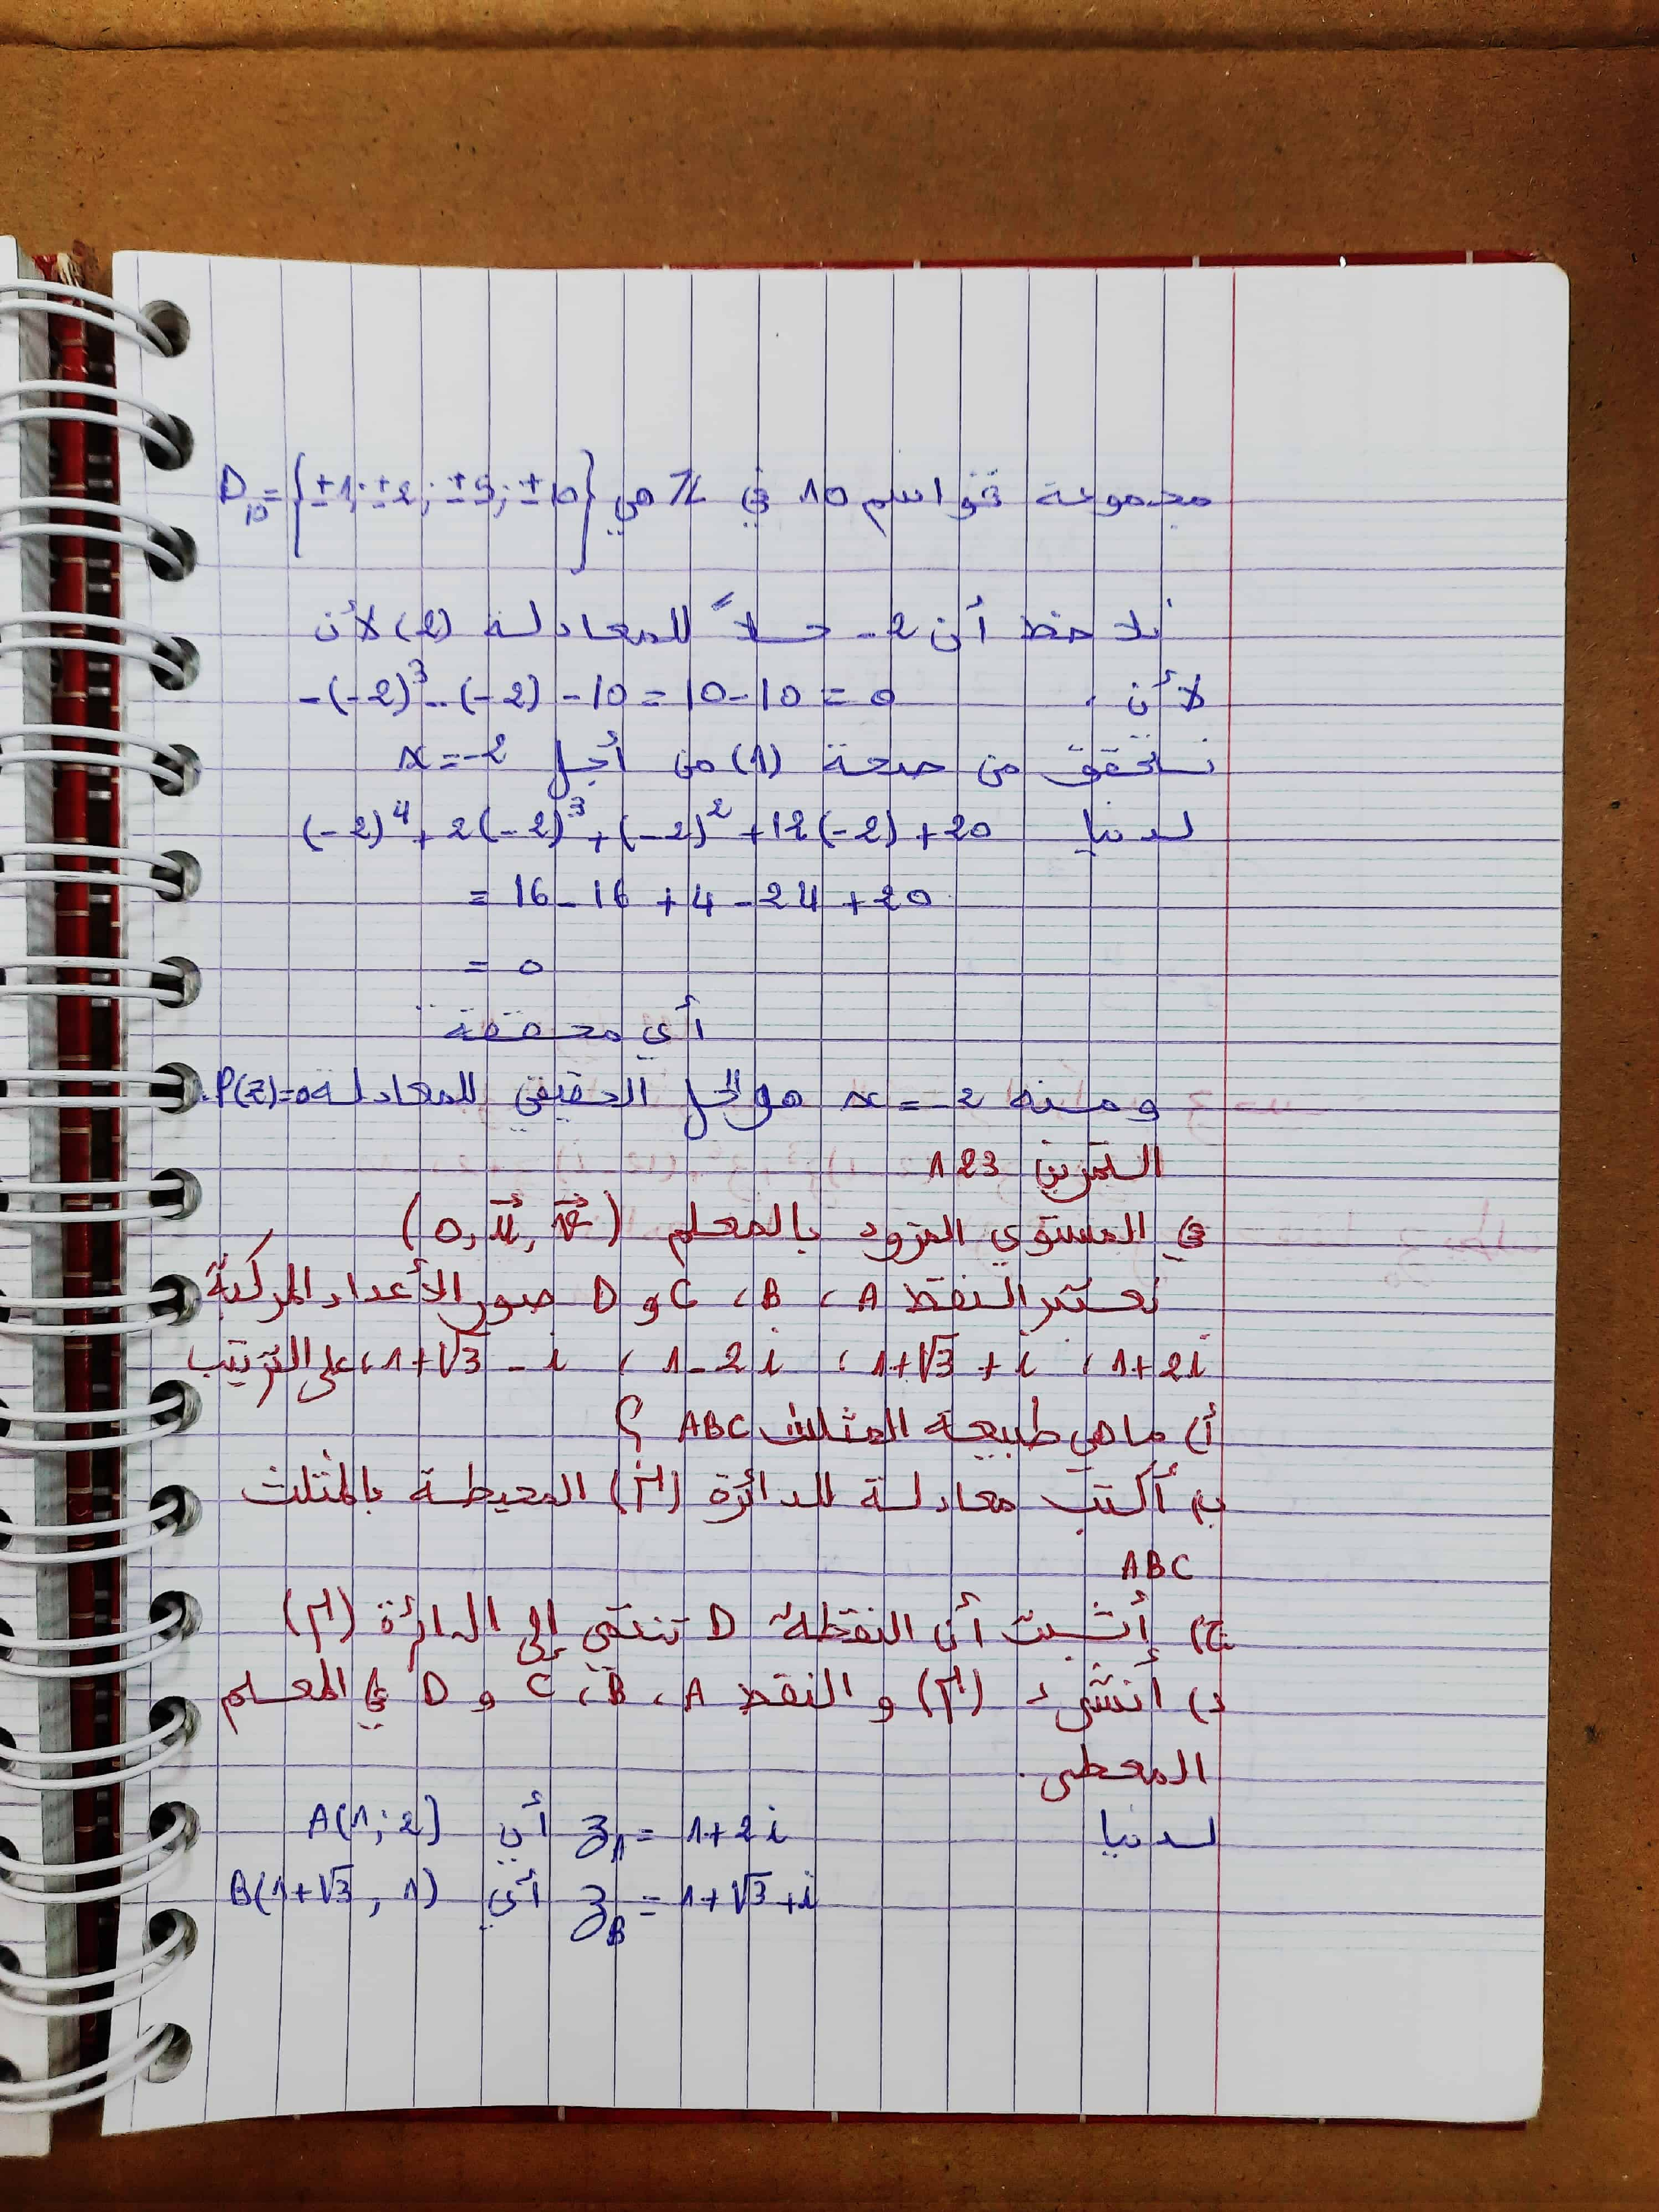 مجموعة قواسم 10 في Z هي D₁₀ = {±1; ±2; ±5; ±10}
نلاحظ أن 2- حلاً للمعادلة (2) لأن
لأن -(-2)³ - (-2) - 10 = 10 - 10 = 0
نتحقق من صحة (1) من أجل x = -2
لدينا (-2)⁴ + 2(-2)³ + (-2)² + 12(-2) + 20
= 16 - 16 + 4 - 24 + 20
= 0
أي محققة
ومنه x = -2 هو الحل الحقيقي للمعادلة P(z)=0.
التمرين 123
في المستوي المزود بالمعلم (O, u⃗, v⃗)
نعتبر النقط A ، B ، C و D صور الأعداد المركبة
1+2i ، 1+√3+i ، 1-2i ، 1+√3-i ، على الترتيب
أ) ما هي طبيعة المثلث ABC ؟
ب) أكتب معادلة للدائرة (Γ) المحيطة بالمثلث
ABC
ج) أثبت أن النقطة D تنتمي إلى الدائرة (Γ)
د) أنشئ (Γ) و النقط A ، B ، C و D في المعلم
المعطى.
لدينا z_A = 1+2i أي A(1; 2)
z_B = 1+√3+i أي B(1+√3, 1)